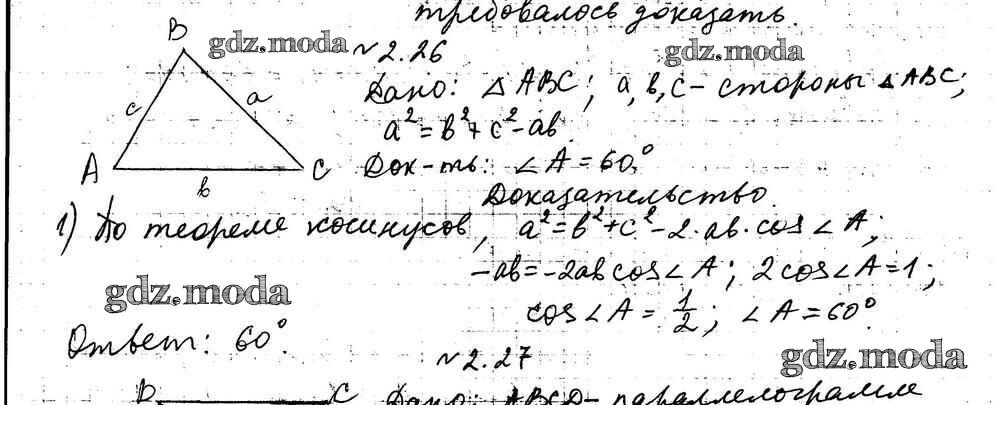 требовалось доказать.
B
gdz.moda
№2.26
gdz.moda
Дано: △ABC; a, b, c - стороны △ABC;
c
a
a² = b² + c² - ab.
A
C
Док-ть: ∠A = 60°.
b
Доказательство.
1) По теореме косинусов, a² = b² + c² - 2·ab·cos∠A;
-ab = -2ab cos∠A; 2cos∠A = 1;
gdz.moda
cos∠A = 1/2; ∠A = 60°.
Ответ: 60°.
№2.27
gdz.moda
B
C
Дано: ABCD - параллелограмм